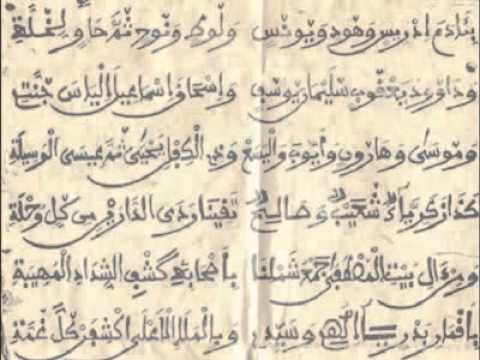 بئادم ادريس وهود ويونس ولوط ونوح ثم
وداوود يعقوب سليمان يوسف وإسحاق إسماعيل إلياس
وموسى وهارون وأيوب واليسع وذي الكفل يحيى ثم عيسى الوسيلة
كذا زكرياء شعيب وصالح تقينا ردى الدارين من كل
ومن ال بيت المصطفى جمع شملنا بأصحابه كشف الشداد المهيبة
بأقمار بدر وبالملإ الأعلى اكشفن كل غمة